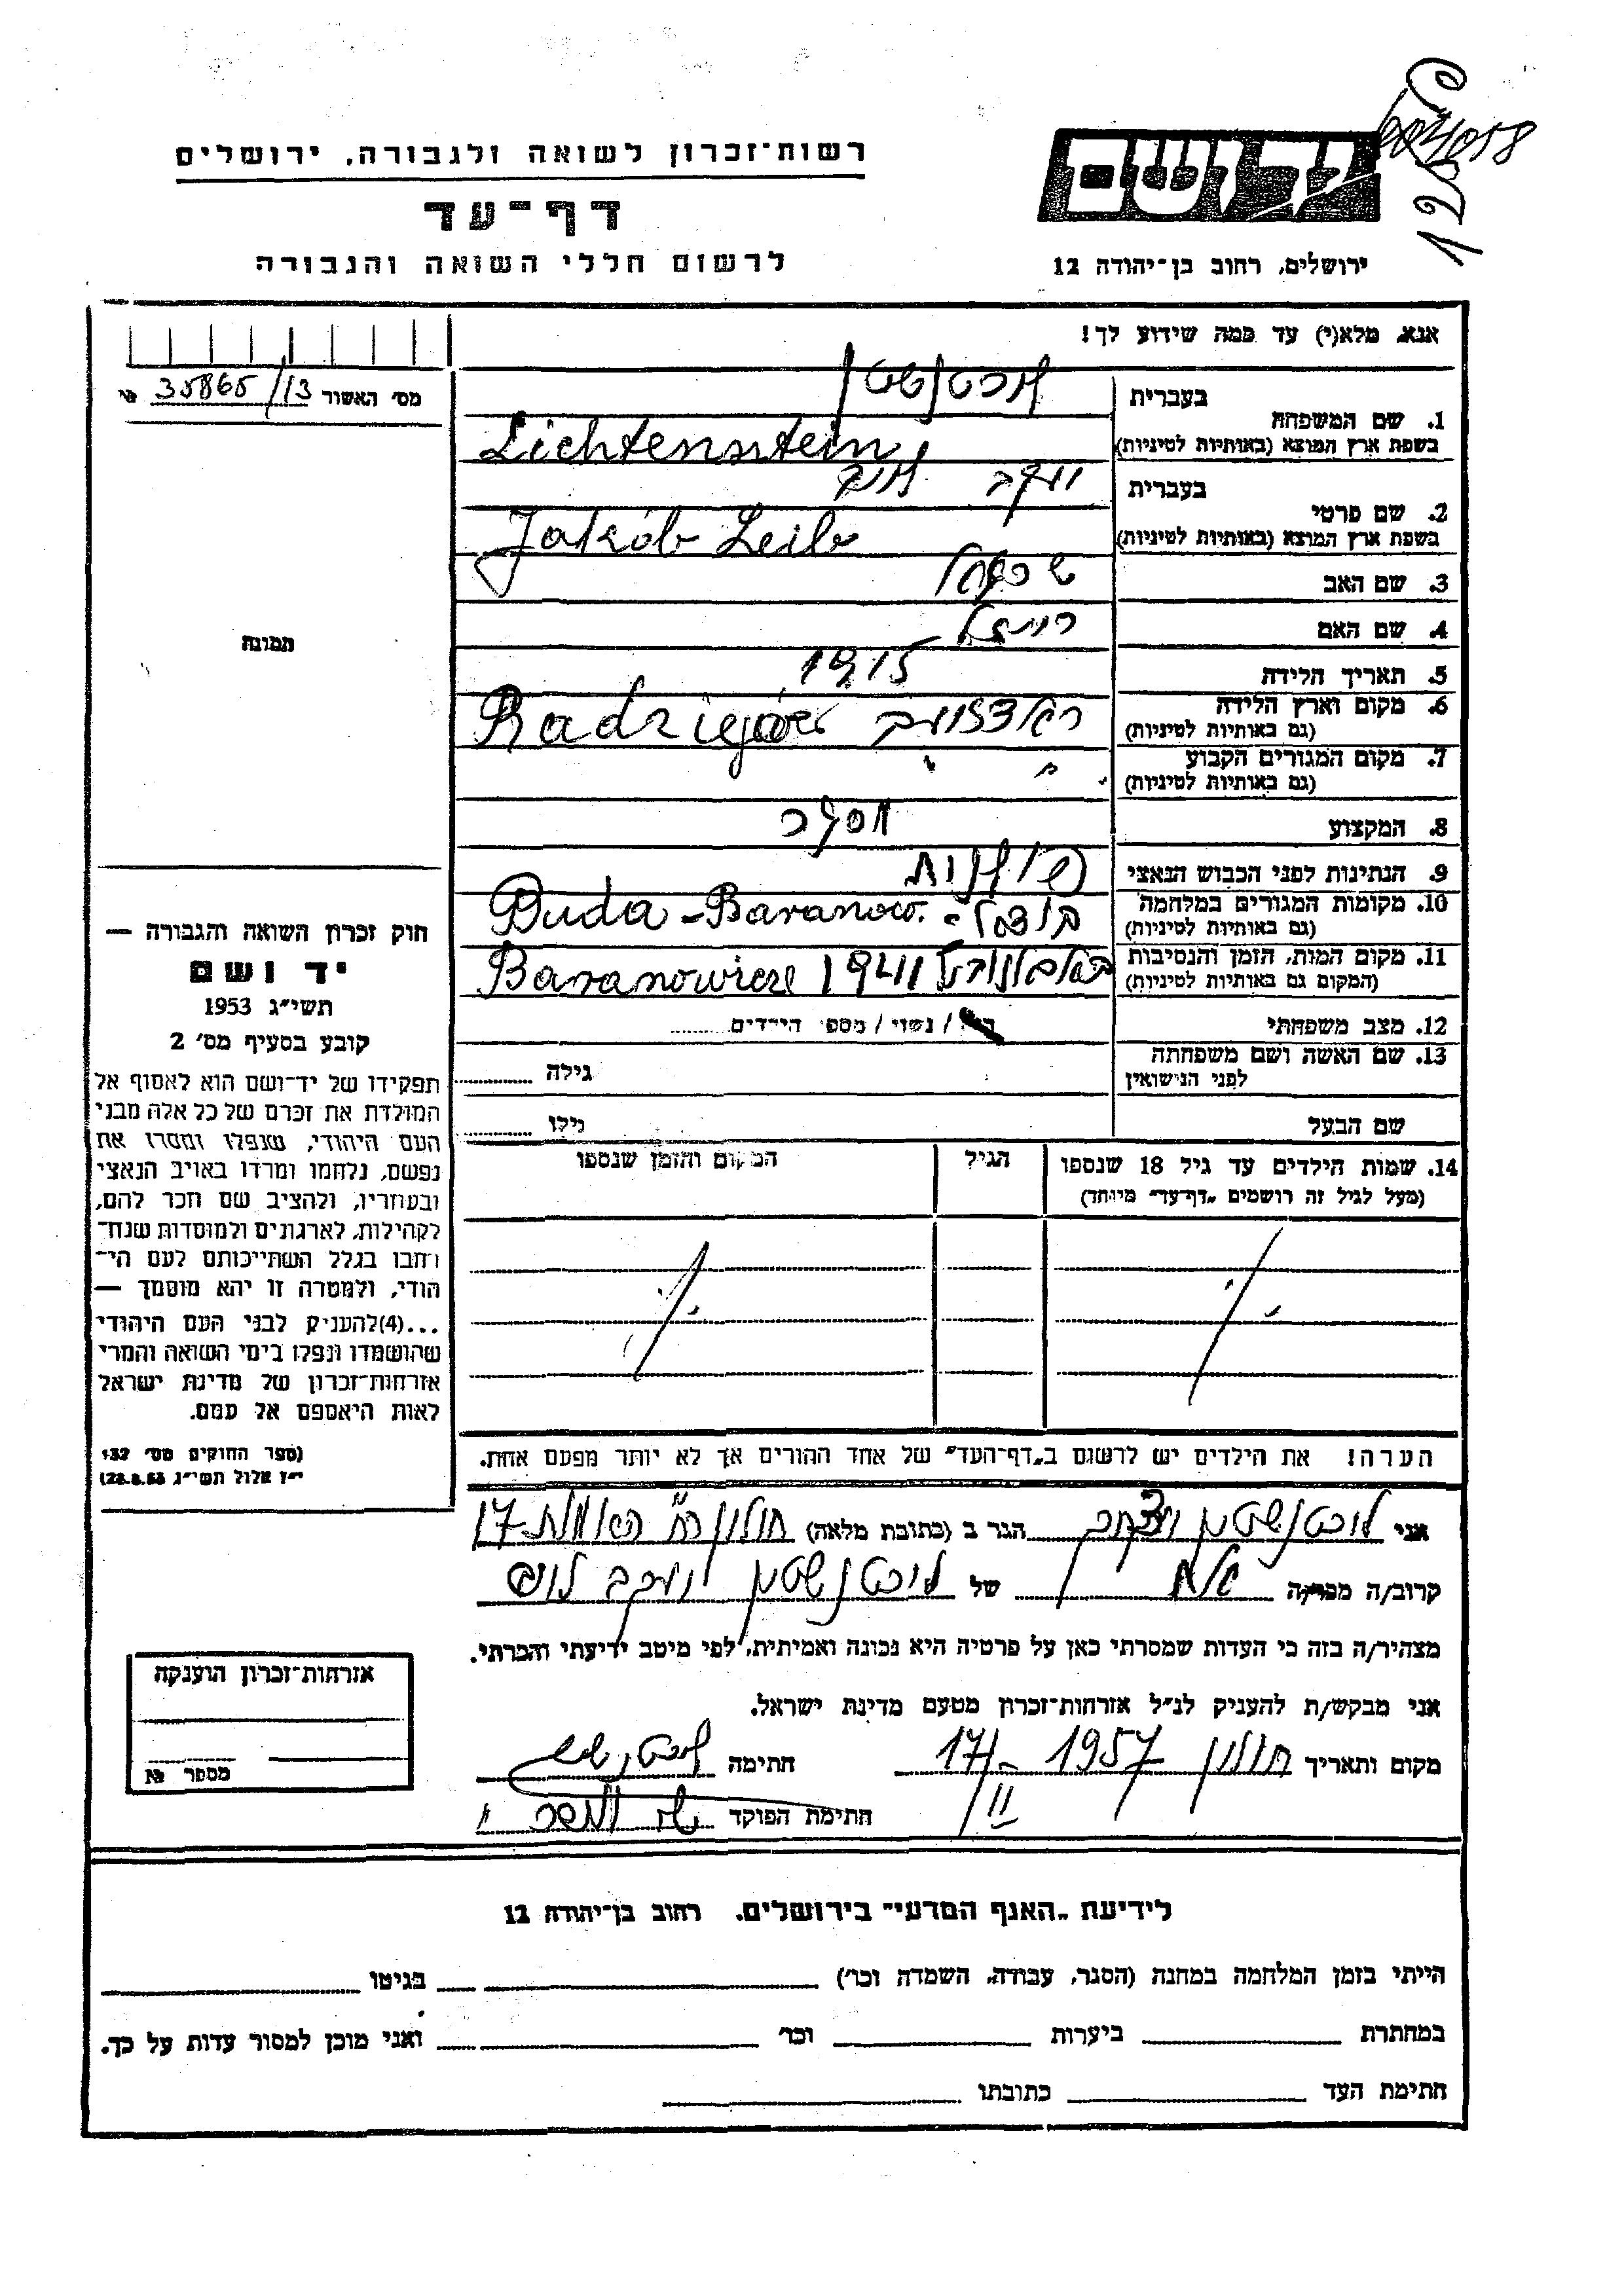 004058
12
רשות־זכרון לשואה ולגבורה, ירושלים
דף־עד
לרשום חללי השואה והגבורה
יד ושם
ירושלים, רחוב בן־יהודה 12
אנא, מלא(י) עד כמה שידוע לך!
מס׳ האשור 35865/13 №
תמונה
1. שם המשפחה
בעברית ליכטנשטין
בשפת ארץ המוצא (באותיות לטיניות) Lichtensstein
2. שם פרטי
בעברית יעקב לייב
בשפת ארץ המוצא (באותיות לטיניות) Jakób Leib
3. שם האב
4. שם האם רויזל
5. תאריך הלידה 1915
6. מקום וארץ הלידה
(גם באותיות לטיניות) Radziejów
7. מקום המגורים הקבוע
(גם באותיות לטיניות) " "
8. המקצוע
9. הנתינות לפני הכבוש הנאצי פולנית
10. מקומות המגורים במלחמה
(גם באותיות לטיניות) Buda-Baranow.
11. מקום המות, הזמן והנסיבות
(המקום גם באותיות לטיניות) 1941 Baranowicze
12. מצב משפחתי / נשוי / מספר הילדים
13. שם האשה ושם משפחתה
לפני הנישואין
גילה
שם הבעל גילו
14. שמות הילדים עד גיל 18 שנספו
(מעל לגיל זה רושמים „דף־עד" מיוחד)
הגיל
המקום והזמן שנספו
הערה! את הילדים יש לרשום ב„דף־העד" של אחד ההורים אך לא יותר מפעם אחת.
חוק זכרון השואה והגבורה —
יד ושם
תשי״ג 1953
קובע בסעיף מס׳ 2
תפקידו של יד־ושם הוא לאסוף אל
המולדת את זכרם של כל אלה מבני
העם היהודי, שנפלו ומסרו את
נפשם, נלחמו ומרדו באויב הנאצי
ובעוזריו, ולהציב שם וזכר להם,
לקהילות, לארגונים ולמוסדות שנח־
רבו בגלל השתייכותם לעם הי־
הודי, ולמטרה זו יהא מוסמך —
...(4)להעניק לבני העם היהודי
שהושמדו ונפלו בימי השואה והמרי
אזרחות־זכרון של מדינת ישראל
לאות היאספם אל עמם.
(ספר החוקים מס׳ 132
י״ז אלול תשי״ג 28.8.53)
אני ליכטנשטין הגר ב (כתובת מלאה) חולון 17
קרוב/ה מכר/ה אח של ליכטנשטין יעקב לייב
מצהיר/ה בזה כי העדות שמסרתי כאן על פרטיה היא נכונה ואמיתית, לפי מיטב ידיעתי והכרתי.
אני מבקש/ת להעניק לנ״ל אזרחות־זכרון מטעם מדינת ישראל.
מקום ותאריך חולון 1957 17/II חתימה
חתימת הפוקד
אזרחות־זכרון הוענקה
מספר №
לידיעת „האגף המדעי" בירושלים, רחוב בן־יהודה 12
הייתי בזמן המלחמה במחנה (הסגר, עבודה, השמדה וכו׳) בגיטו
במחתרת ביערות וכו׳ ואני מוכן למסור עדות על כך.
חתימת העד כתובתו